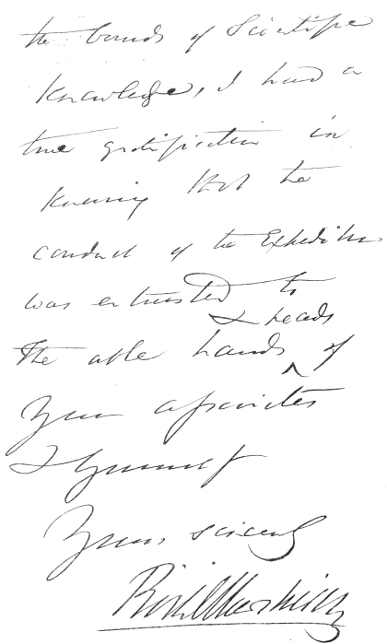 the bounds of Scientific
Knowledge, I had a
true gratification in
knowing that the
conduct of the Expedition
was entrusted to
& heads
the able hands ^ of
Your associates
& Yourself
Yours sincerely